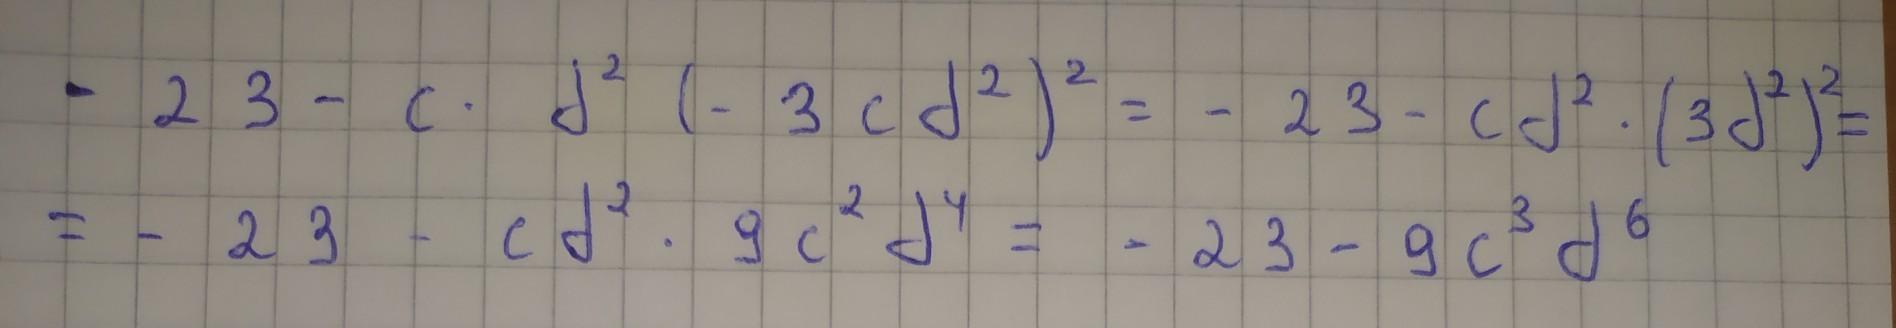 - 23 - c · d² (- 3cd²)² = - 23 - cd² · (3d²)² =
= - 23 - cd² · 9c²d⁴ = - 23 - 9c³d⁶